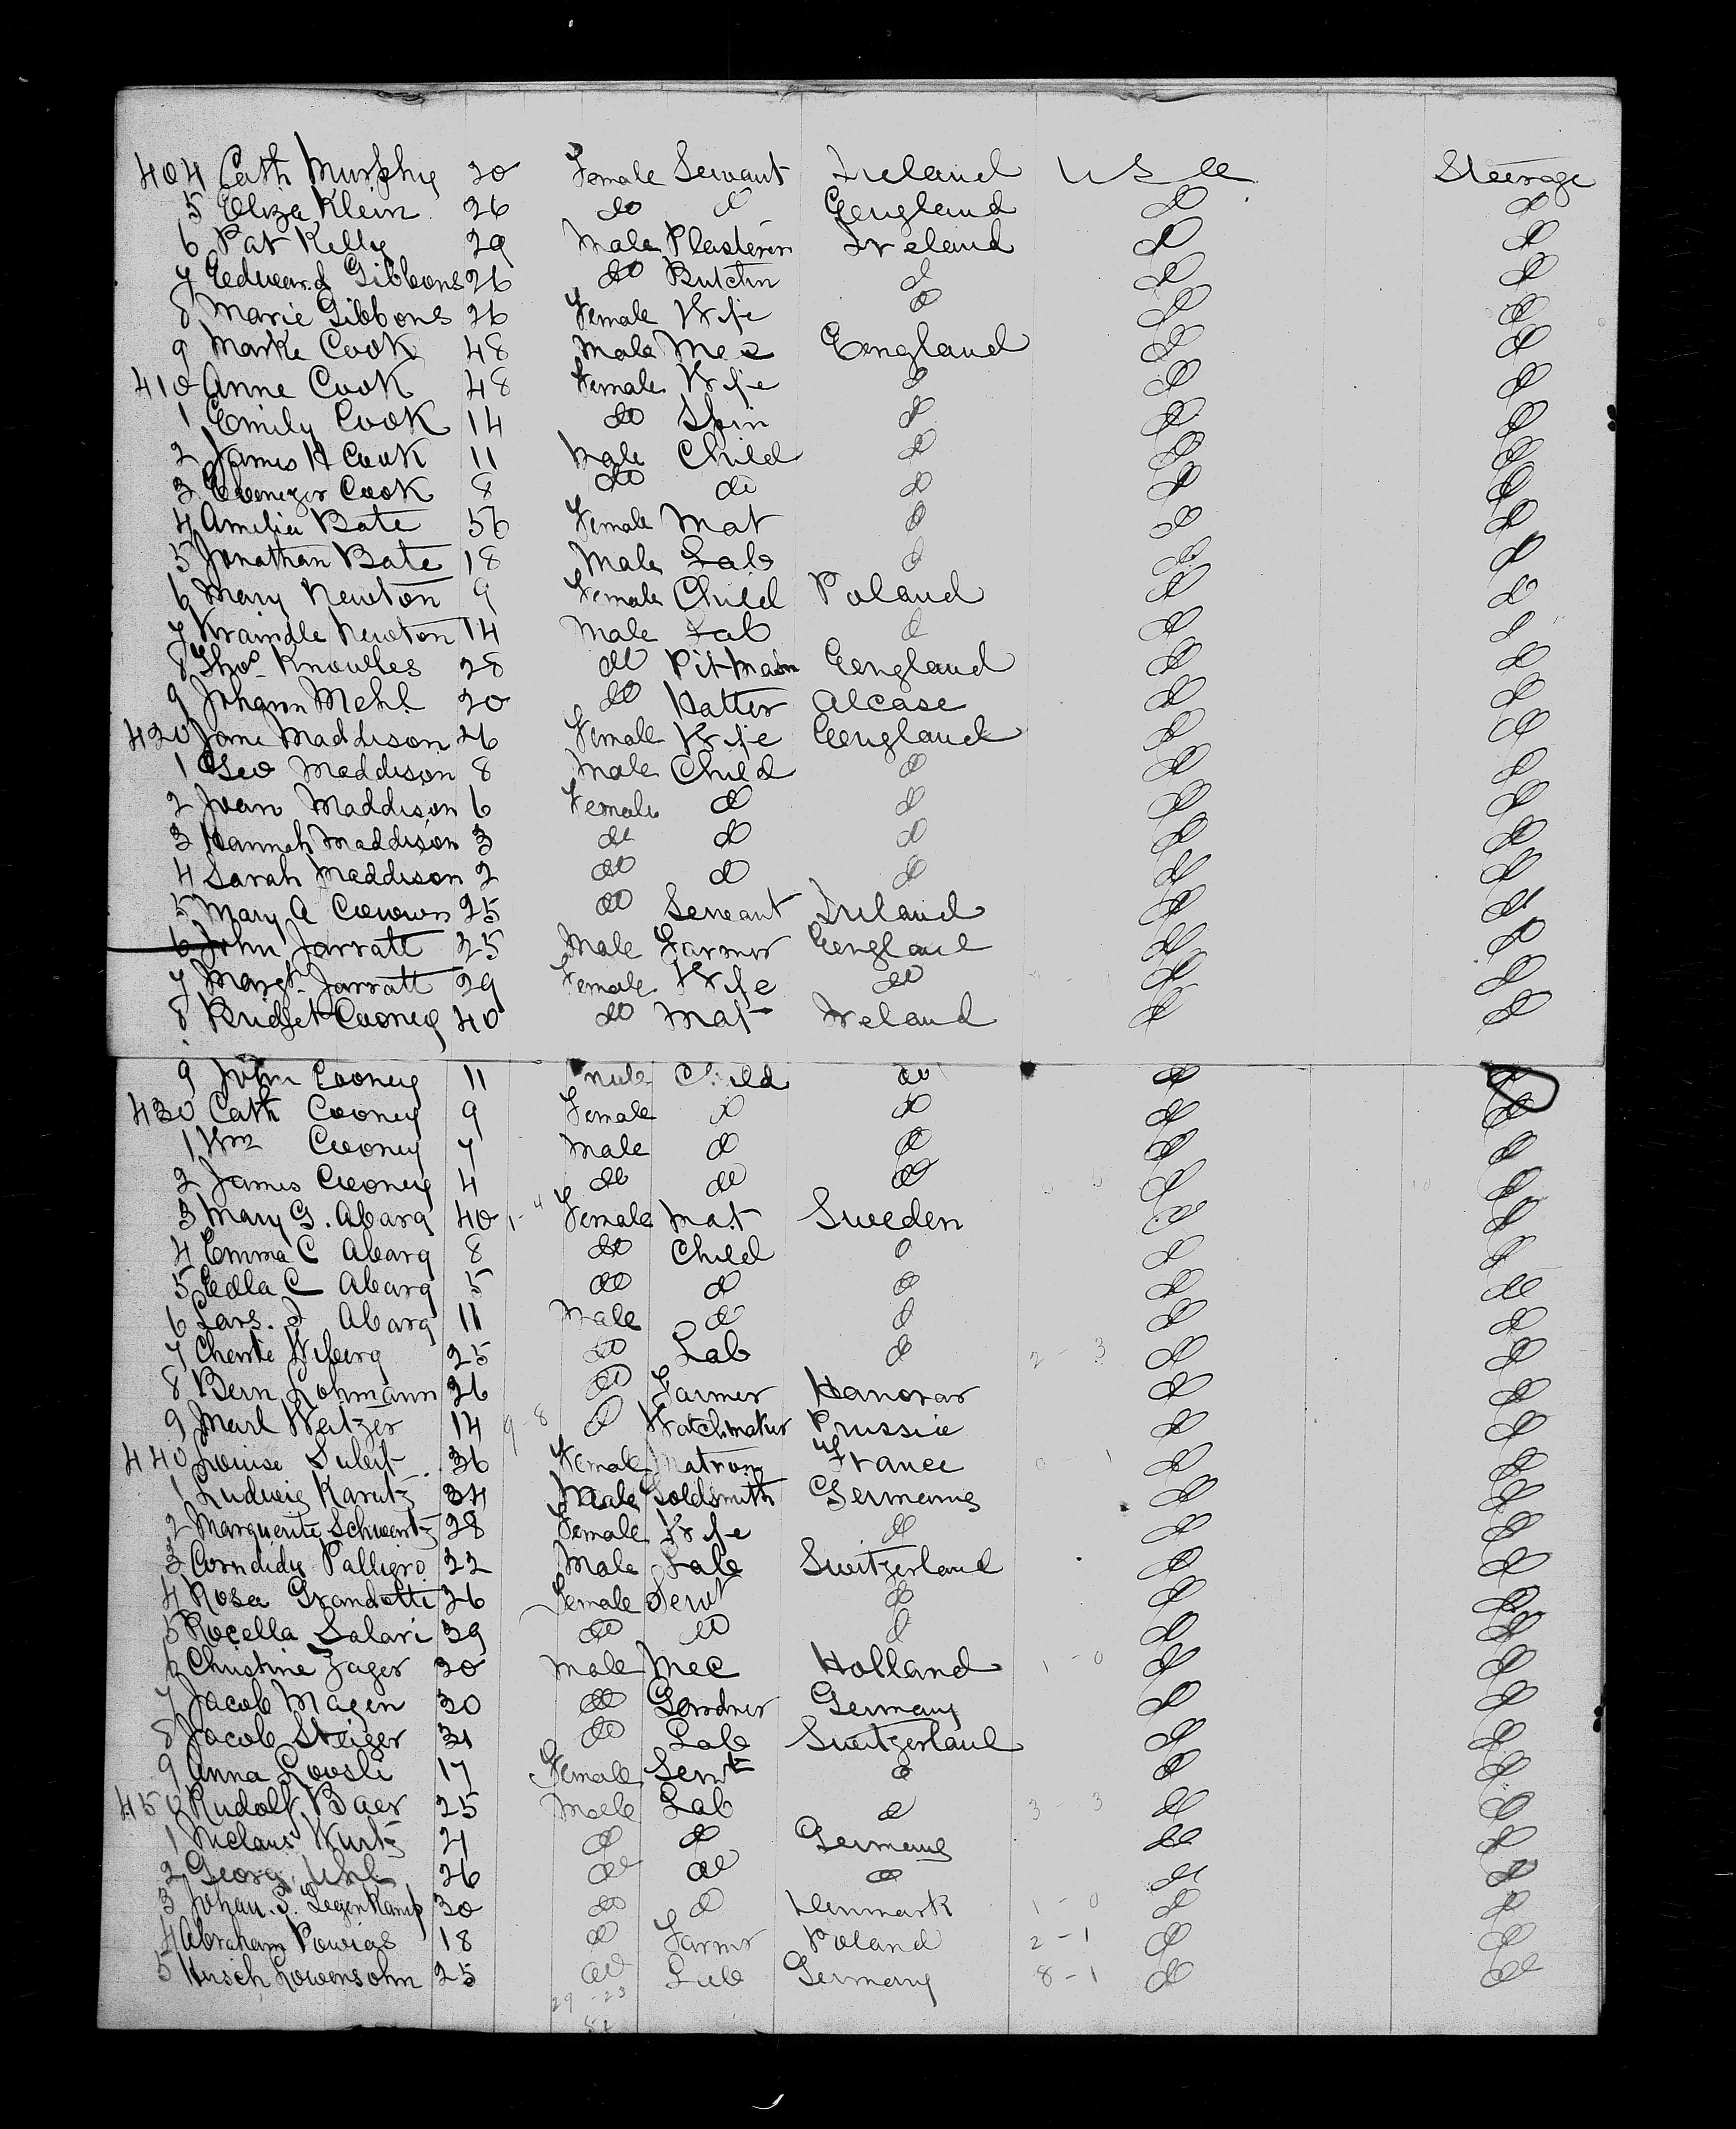 404 Cath Murphy 20 Female Servant Ireland U S a Steerage
5 Eliza Klein 26 do d England d d
6 Pat Kelly 29 Male Plasterer Ireland d d
7 Edward Gibbons 26 do Butcher d d d
8 Marie Gibbons 26 Female Wife d d d
9 Marke Cook 48 Male Mec England d d
410 Anne Cook 48 Female Wife d d d
1 Emily Cook 14 do Spin d d d
2 James H Cook 11 Male Child d d d
3 Ebenezer Cook 8 do do d d d
4 Amelia Bate 56 Female Mat d d d
5 Jonathan Bate 18 Male Lab d d d
6 Mary Newton 9 Female Child Poland d d
7 Kraindle Newton 14 Male Lab d d d
8 Thos Knowles 28 do Pitman England d d
9 Johann Mehl 20 do Hatter Alcase d d
420 Jane Maddison 26 Female Wife England d d
1 Geo Maddison 8 Male Child d d d
2 Joan Maddison 6 Female d d d d
3 Hannah Maddison 3 do d d d d
4 Sarah Maddison 2 do d d d d
5 Mary A 25 do Servant Ireland d d
6 John Jarratt 25 Male Farmer England d d
7 Margt Jarratt 29 Female Wife do d d
8 Bridget Cooney 40 do Mat Ireland d d
9 John Cooney 11 male Child do d d
430 Cath Cooney 9 Female d d d d
1 Wm Cooney 7 Male d d d d
2 James Cooney 4 do do do d d
3 Mary G. Abarg 40 Female Mat Sweden d d
4 Emma C Abarg 8 do Child d d d
5 Edla C Abarg 5 do d d d do
6 Lars. J Abarg 11 Male d d d d
7 Wiberg 25 do Lab d 2 - 3 d d
8 Bern Lohmann 26 do Farmer Hanovar d d
9 Weitzer 14 9-8 d Watchmaker Prussia d d
440 Louise 36 Female Matron France d d
1 Ludwig Karutz 34 Male Goldsmith Germany d d
2 Marguerite Schwartz 28 Female Wife d d d
3 Palligro 22 Male Lab Switzerland d d
4 Rosa Grandotti 26 Female Servt d d d
5 Rocella Salari 39 do do d d d
6 Christine Zager 30 Male Mec Holland 1 - 0 d d
7 Jacob Magen 30 do Gardner Germany d d
8 Jacob Steiger 31 do Lab Switzerland d d
9 Anna Loosli 17 Female Servt d d d
450 Rudolf Baer 25 Male Lab d 3 - 3 d d
1 Wurtz 21 d d Germany do d
2 Georg Uhl 26 do do d d d
3 Johan. S. Legenkamp 30 do d Denmark 1 - 0 d d
4 Abraham Powias 18 d Farmr Poland 2 - 1 d d
5 Hirsch Lowensohn 25 do Lab Germany 8 - 1 d do
29 - 23